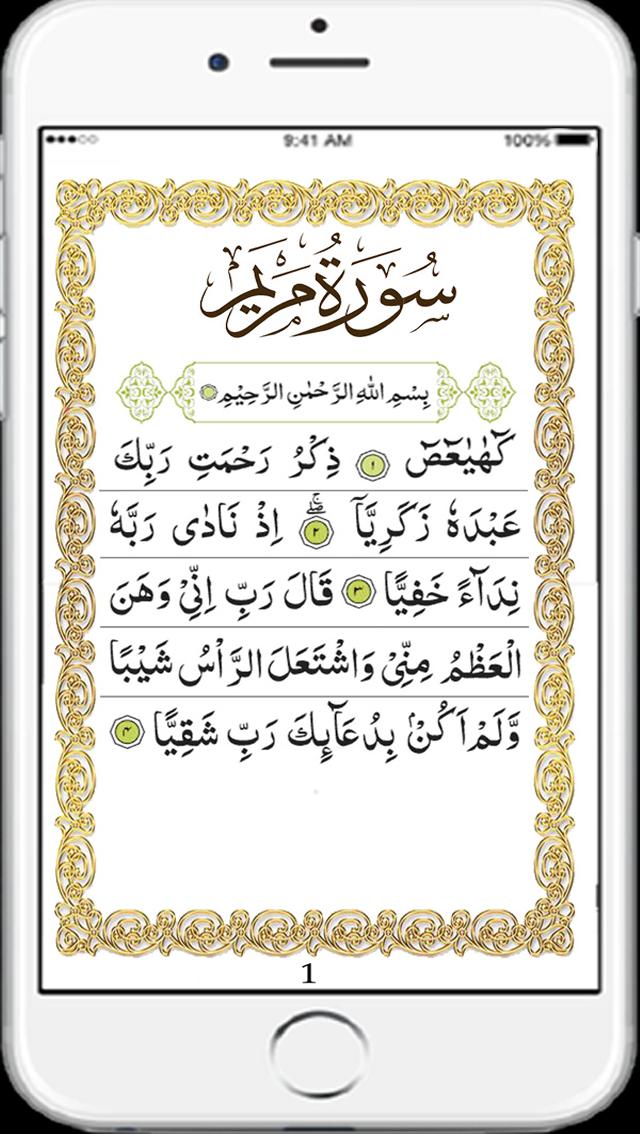 9:41 AM 100%
سُورَةُ مَرْيَم
بِسْمِ اللّٰهِ الرَّحْمٰنِ الرَّحِيْمِ
كٓهٰيٰعٓصٓ ۱ ذِكْرُ رَحْمَتِ رَبِّكَ
عَبْدَهٗ زَكَرِيَّاۚۖ ۲ اِذْ نَادٰى رَبَّهٗ
نِدَآءً خَفِيًّا ۳ قَالَ رَبِّ اِنِّيْ وَهَنَ
الْعَظْمُ مِنِّيْ وَاشْتَعَلَ الرَّاْسُ شَيْبًا
وَّلَمْ اَكُنْۢ بِدُعَآئِكَ رَبِّ شَقِيًّا ۴
1